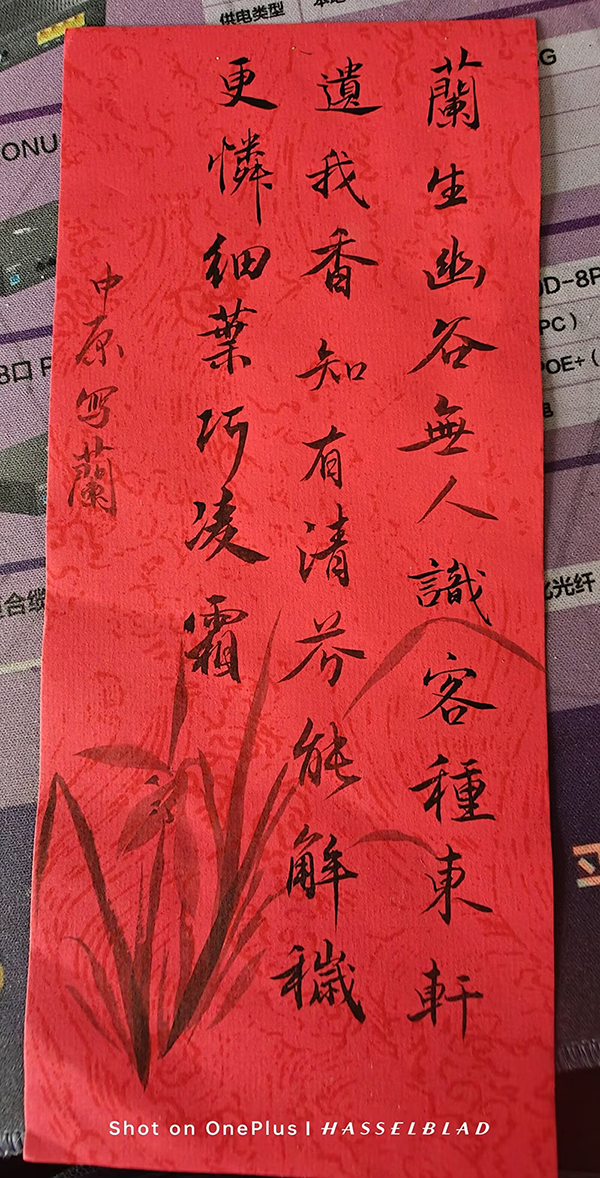 蘭生幽谷無人識客種東軒
遺我香知有清芬能解穢
更憐細葉巧凌霜
中原写蘭
供电类型
ONU
合缆
光纤
Shot on OnePlus | HASSELBLAD